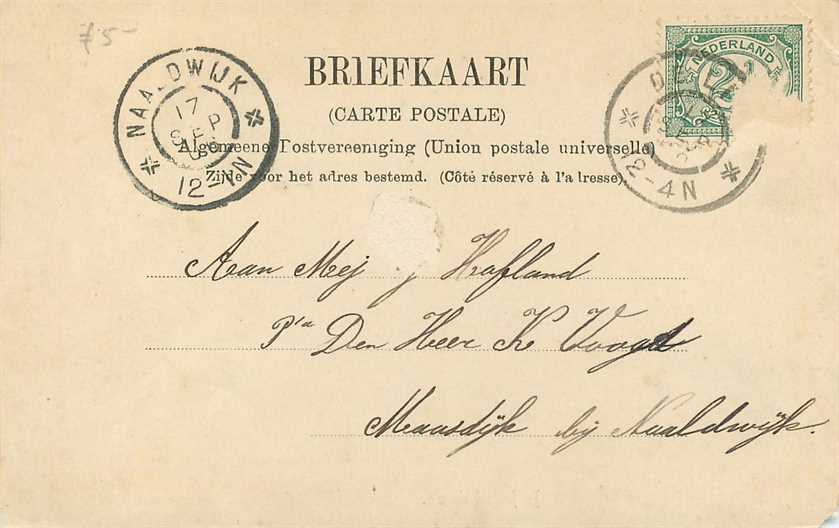 75-
NAALDWIJK
17 SEP
12-1N
NEDERLAND
2½
12-4N
BRIEFKAART
(CARTE POSTALE)
Algemeene Postvereeniging (Union postale universelle)
Zijde voor het adres bestemd. (Côté réservé à l'adresse).
Aan Mej J Hofland
P/a Den Heer K Voogd
Maasdijk bij Naaldwijk.